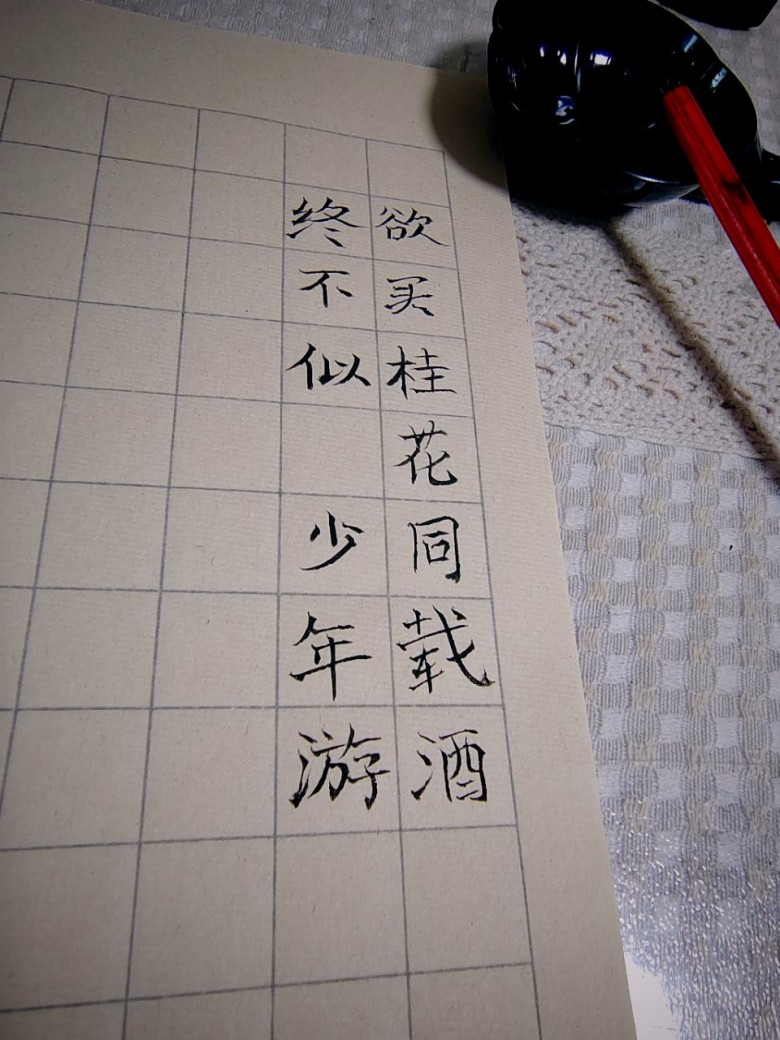 欲买桂花同载酒
终不似 少年游